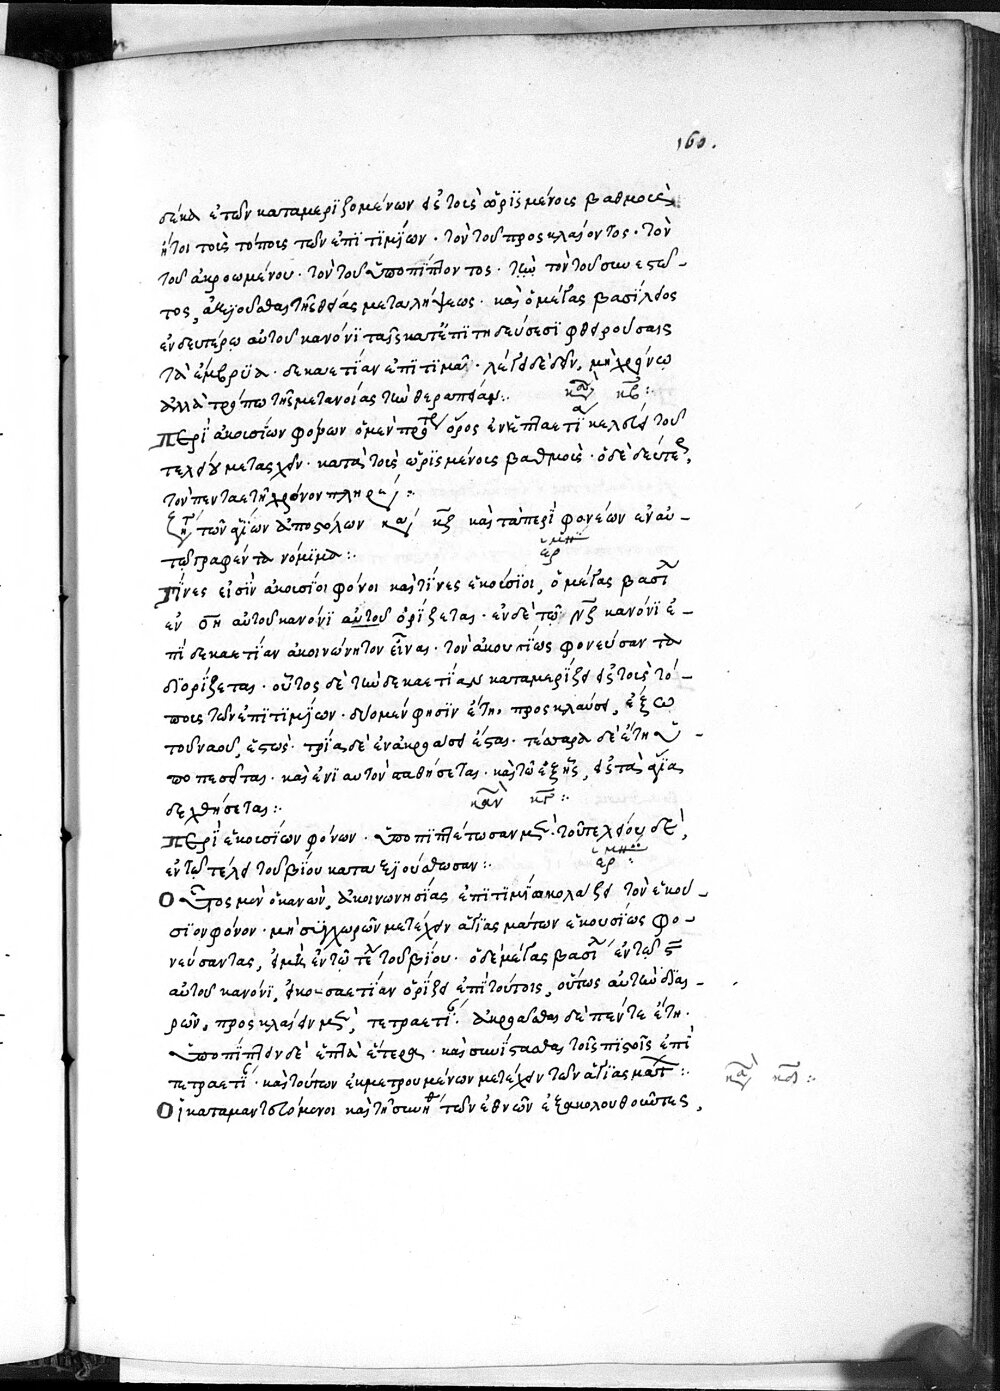 160.
δέκα ἐτῶν καταμεριζομένων εἰς τοῖς ὡρισμένοις βαθμοῖς
ἤτοι τοῖς τόποις τῶν ἐπιτιμίων· τὸν τοῦ προσκλαίοντος· τὸν
τοῦ ἀκροωμένου· τὸν τοῦ ὑποπίπτοντος· τὸν τοῦ συνεστῶ-
τος, ἀξιοῦσθαι τῆς θείας μεταλήψεως· καὶ ὁ μέγας βασίλειος
ἐν δευτέρῳ αὐτοῦ κανόνι ταῖς κατ' ἐπιτήδευσεσι φθειρούσαις
τὰ ἔμβρυα· δεκαετίαν ἐπιτιμᾶ· λέγει δὲ δεῖν, μὴ χρόνῳ
ἀλλὰ τρόπῳ τῆς μετανοίας τὴν θεραπείαν:· κανὼν κβ:·
Περὶ ἀκουσίων φόνων ὁ μὲν πρῶτος ὅρος ἐν ἑπταετίᾳ κελεύει τοῦ
τελείου μετασχεῖν· κατὰ τοῖς ὡρισμένοις βαθμοῖς· ὁ δὲ δεύτερος,
τὸν πενταετῆ χρόνον πληρ:·
τῶν ἁγίων ἀποστόλων κανὼν κζ καὶ τὰ περὶ φονέων ἐν αὐ-
τῷ γραφέντα νόμιμα:· ἑρμη
Τίνες εἰσὶν ἀκούσιοι φόνοι καὶ τίνες ἑκούσιοι, ὁ μέγας βασι
ἐν η αὐτοῦ κανόνι αὐτοῦ ὁρίζεται· ἐν δὲ τῷ νζ κανόνι ἐ-
πὶ δεκαετίαν ἀκοινώνητον εἶναι· τὸν ἀκουσίως φονεύσαντα
διορίζεται· οὗτος δὲ τὴν δεκαετίαν καταμερίζει εἰς τοῖς τό-
ποις τῶν ἐπιτιμίων· δύο μέν φησιν ἔτη, προσκλαύσει, ἔξω
τοῦ ναοῦ, ἑστώς· τρία δὲ ἐν ἀκροάσει ἔσται· τέσσαρα δὲ ἔτη ὑ-
ποπεσεῖται· καὶ ἐνιαυτὸν σταθήσεται· καὶ τῷ ἑξῆς, εἰς τὰ ἅγια
δεχθήσεται:· κανὼν κγ:·
Περὶ ἑκουσίων φόνων· ὑποπιπτέτωσαν μὲν· τοῦ τελείου δὲ,
ἐν τῷ τέλει τοῦ βίου καταξιούσθωσαν:· ἑρμη:·
Οὗτος μὲν ὁ κανὼν, ἀκοινωνησίας ἐπιτιμίῳ κολάζει τὸν ἑκού-
σιον φόνον· μὴ συγχωρῶν μετέχειν ἁγιασμάτων ἑκουσίως φο-
νεύσαντας, εἰ μὴ ἐν τῷ τέλει τοῦ βίου· ὁ δὲ μέγας βασι ἐν τῷ νς
αὐτοῦ κανόνι, εἰκοσαετίαν ὁρίζει ἐπὶ τούτοις, οὕτως αὐτὴν διαι-
ρῶν, προσκλαίειν μὲν, τετραετία· ἀκροᾶσθαι δὲ πέντε ἔτη·
ὑποπίπτειν δὲ ἑπτὰ ἕτερα· καὶ συνίστασθαι τοῖς πιστοῖς ἐπὶ
τετραετί· καὶ τούτων ἐκμετρουμένων μετέχειν τῶν ἁγιασμάτ:· κανὼν κδ:·
Οἱ καταμαντευόμενοι καὶ τῇ συνηθ τῶν ἐθνῶν ἐξακολουθοῦντες,